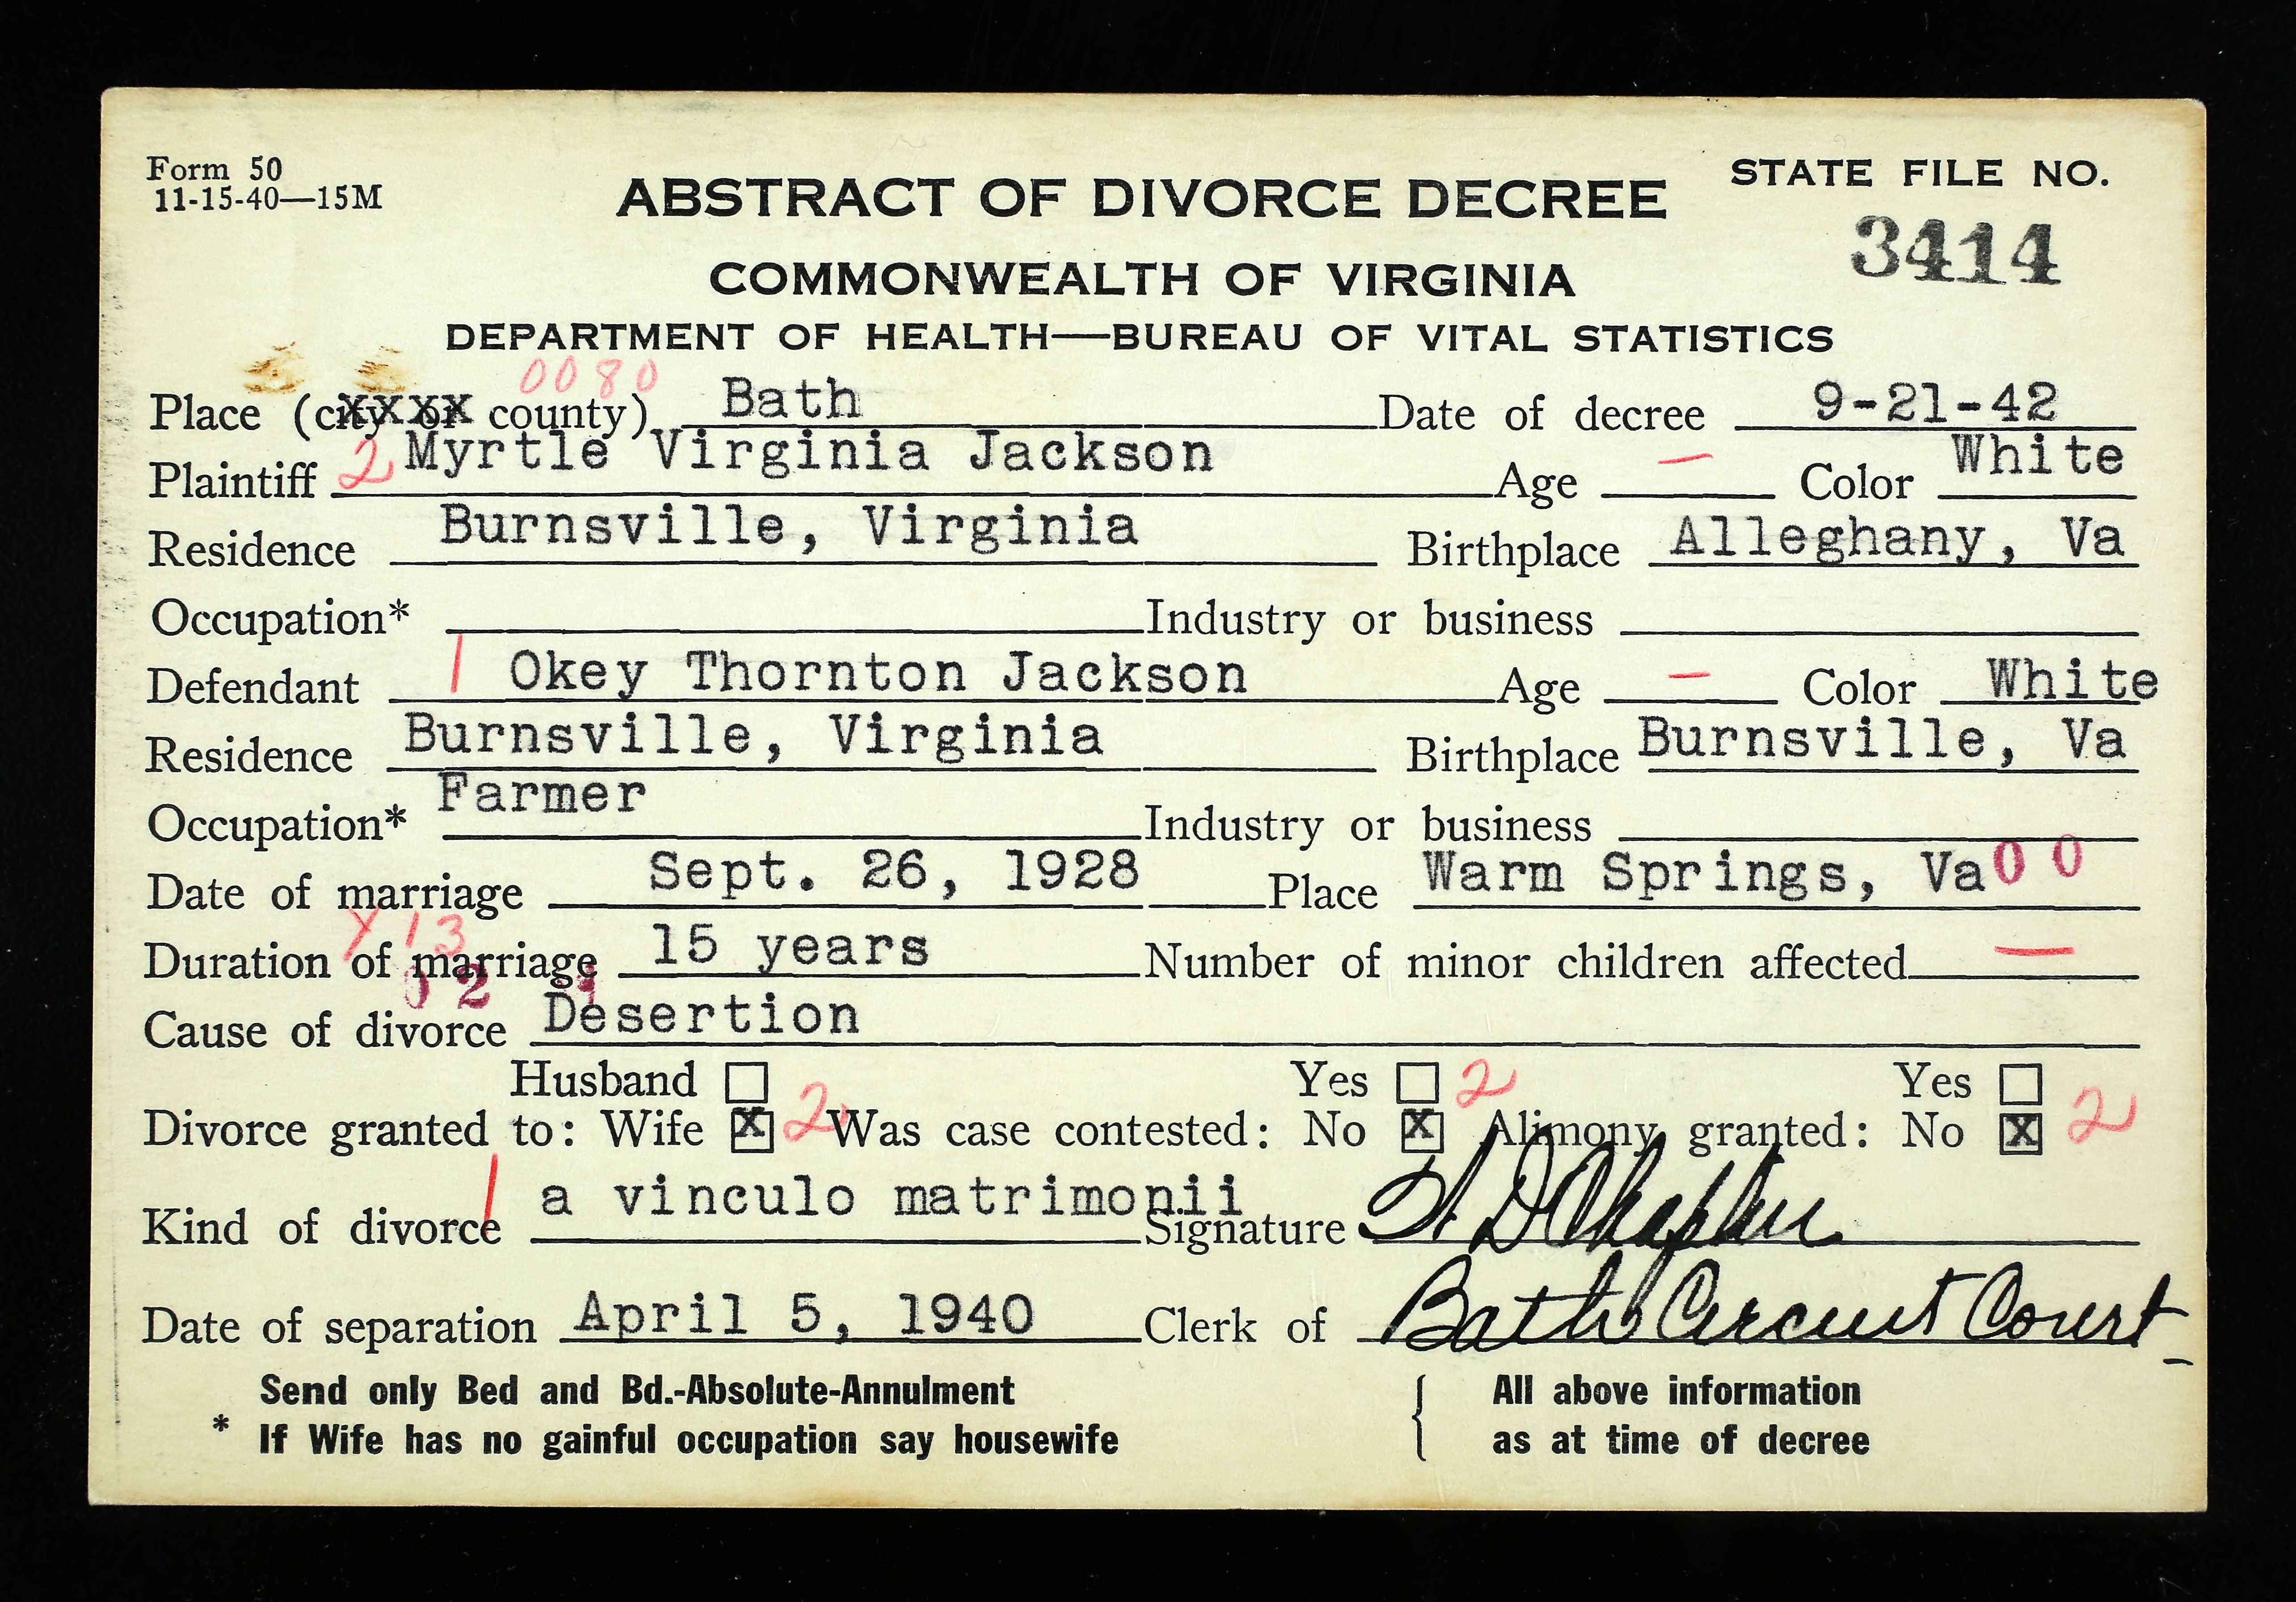 Form 50
11-15-40—15M
ABSTRACT OF DIVORCE DECREE
STATE FILE NO.
3414
COMMONWEALTH OF VIRGINIA
DEPARTMENT OF HEALTH—BUREAU OF VITAL STATISTICS
0080
Place (city or county) Bath Date of decree 9-21-42
Plaintiff 2 Myrtle Virginia Jackson Age — Color White
Residence Burnsville, Virginia Birthplace Alleghany, Va
Occupation* Industry or business
Defendant 1 Okey Thornton Jackson Age — Color White
Residence Burnsville, Virginia Birthplace Burnsville, Va
Occupation* Farmer Industry or business
Date of marriage Sept. 26, 1928 Place Warm Springs, Va 0 0
Y 13
Duration of marriage 15 years Number of minor children affected —
0 2
Cause of divorce Desertion
Husband Yes 2 Yes
Divorce granted to: Wife X 2 Was case contested: No X Alimony granted: No X 2
Kind of divorce 1 a vinculo matrimonii Signature
Date of separation April 5, 1940 Clerk of Bath Circuit Court
Send only Bed and Bd.-Absolute-Annulment { All above information
* If Wife has no gainful occupation say housewife as at time of decree